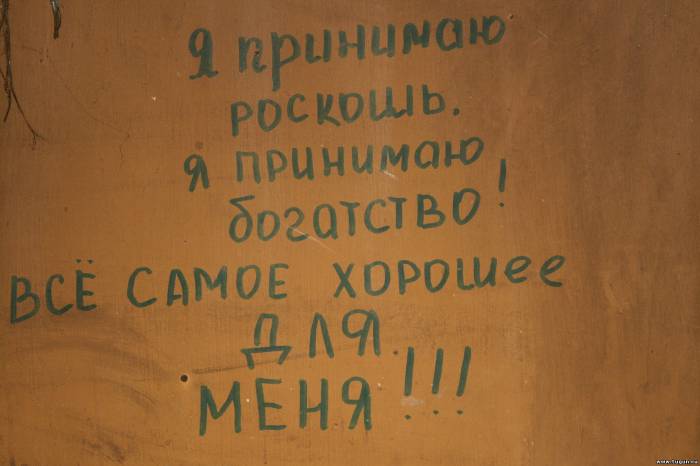 Я принимаю
роскошь.
Я принимаю
богатство!
ВСЁ САМОЕ ХОРОШЕЕ
ДЛЯ
МЕНЯ!!!